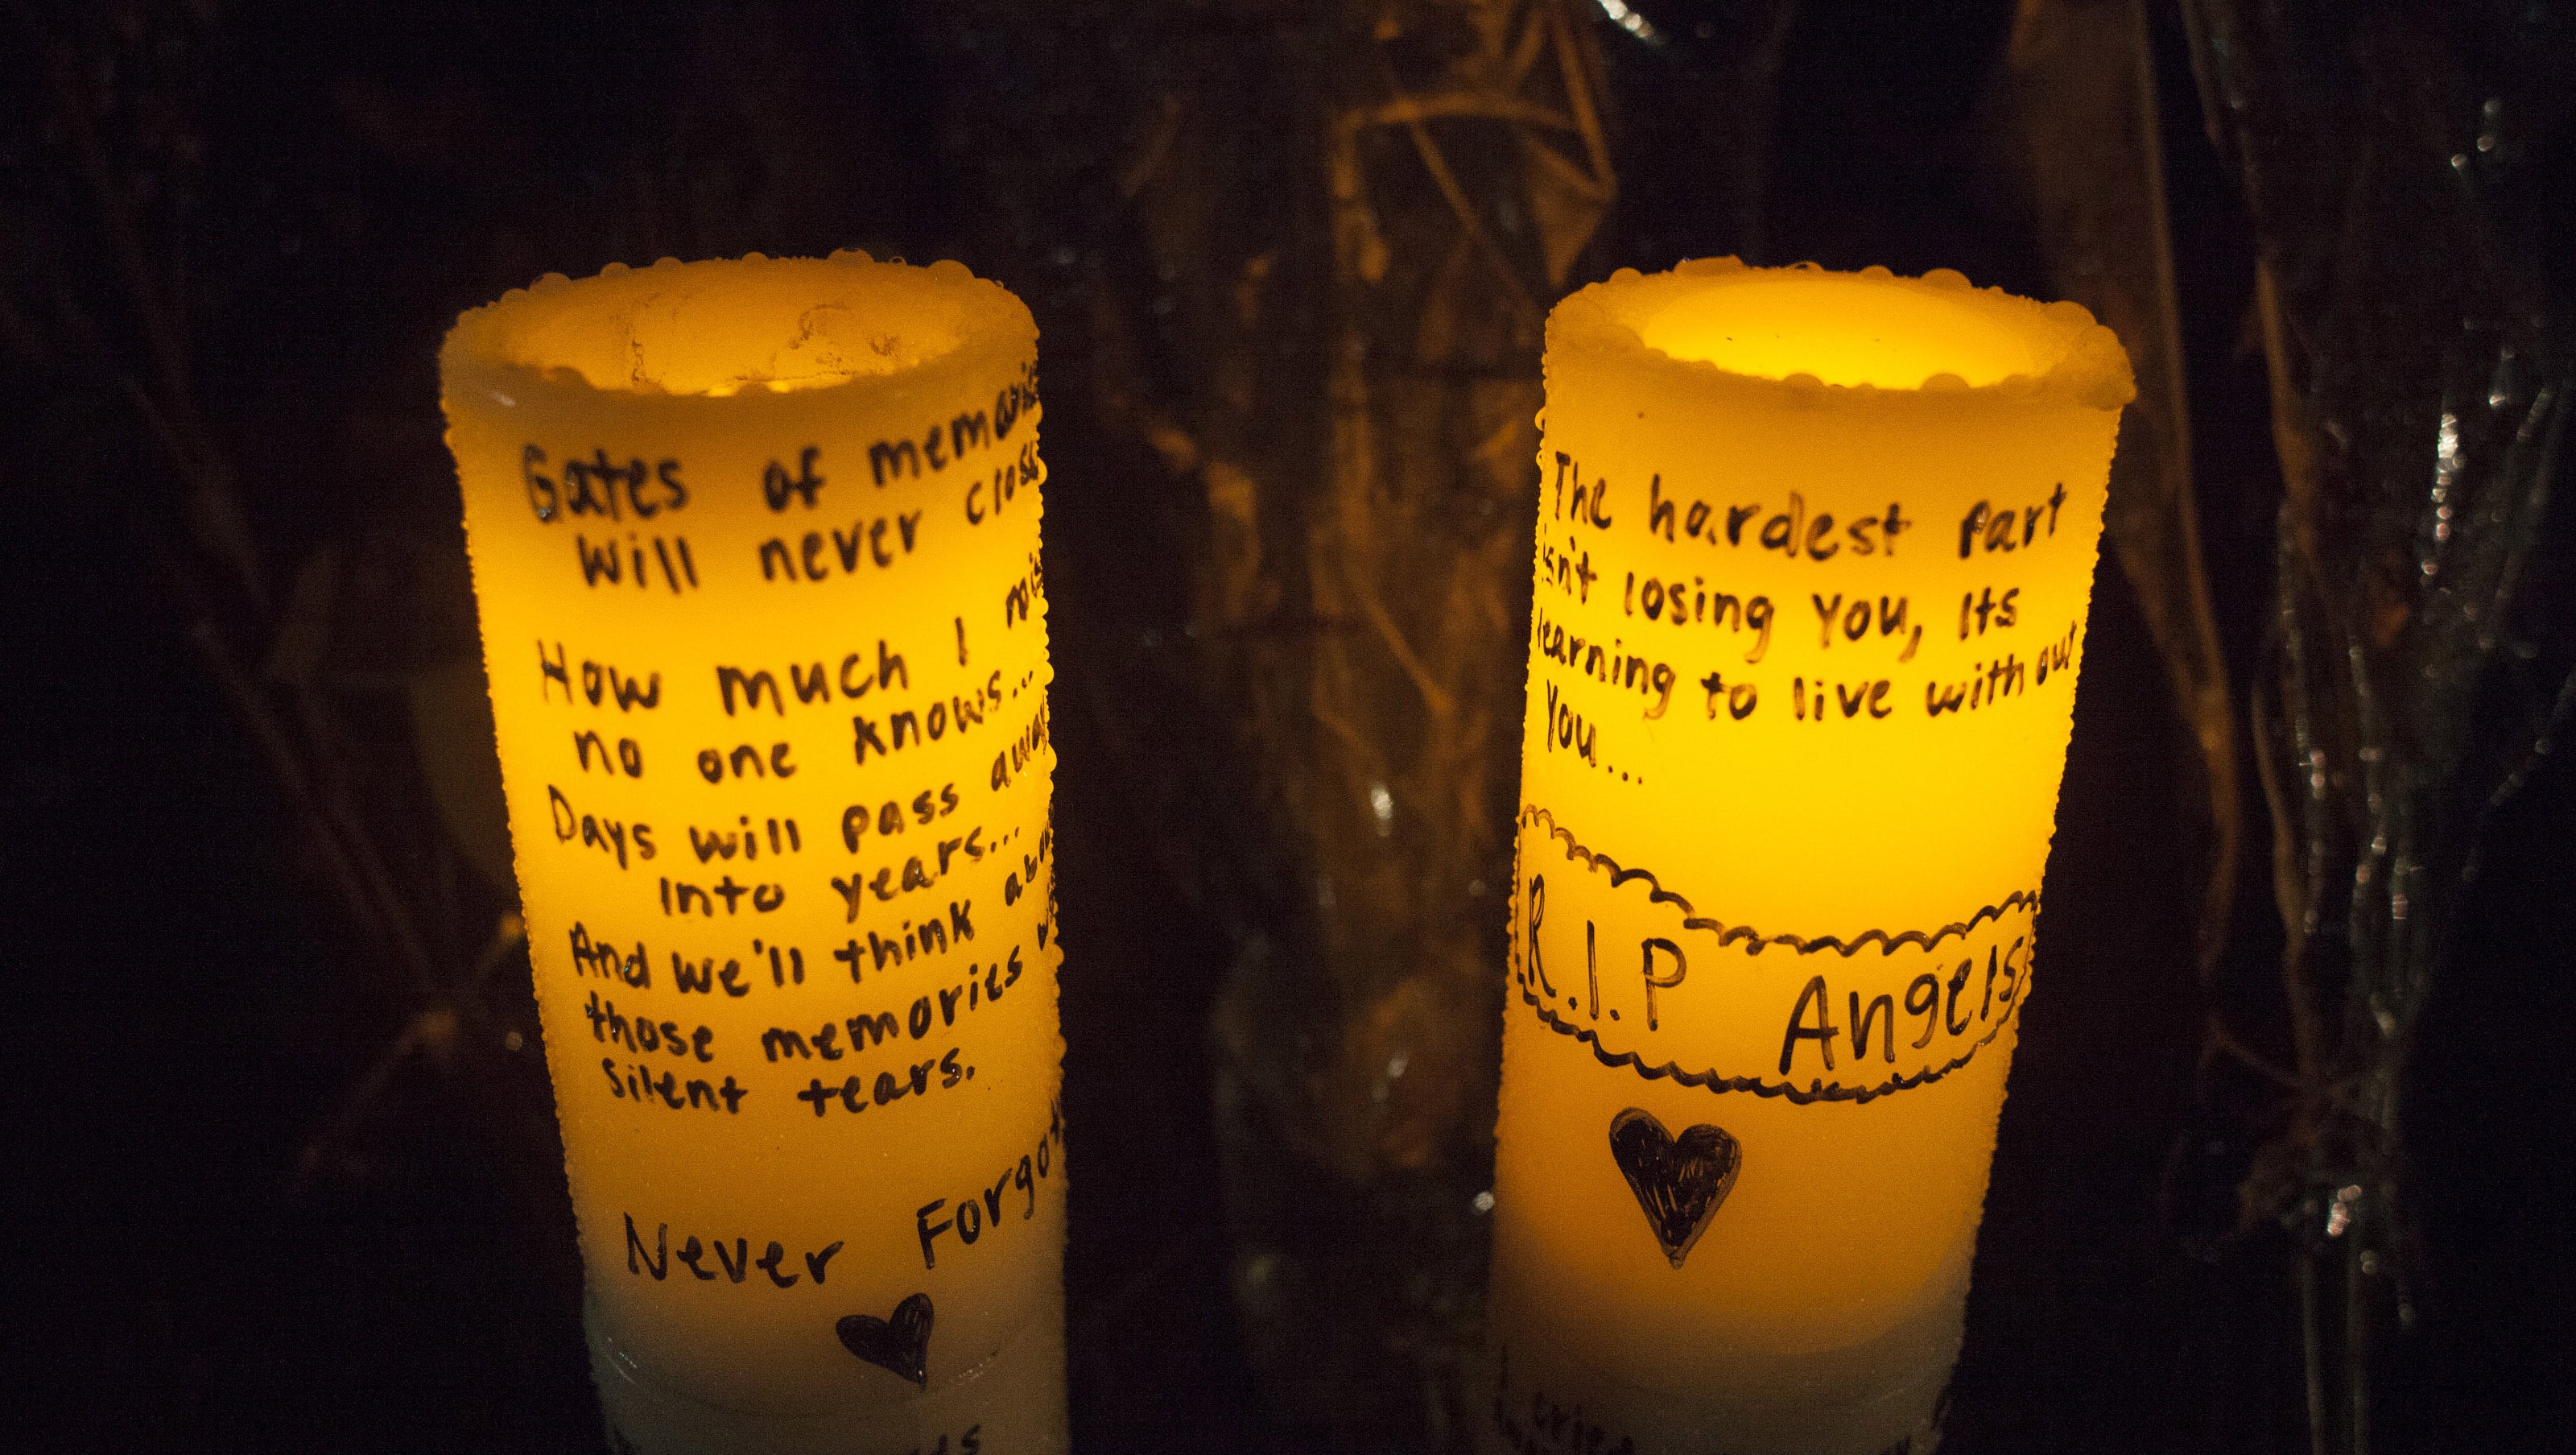 Gates of memories
Will never close
How much I miss
no one knows...
Days will pass away
Into years...
And we'll think about
those memories
Silent tears.
Never Forgot
The hardest part
isn't losing you, its
learning to live without
you...
R.I.P Angels
I cried